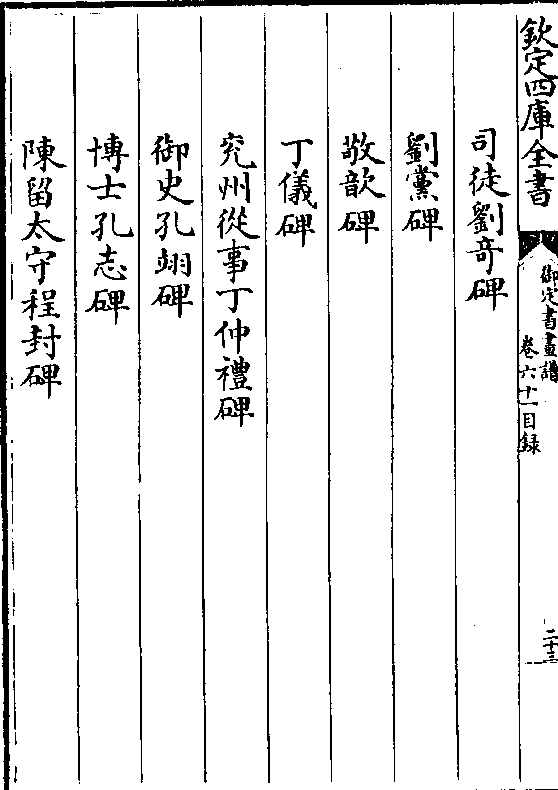 欽定四庫全書
御定書畫譜
卷六十一目録
二十三
司徒劉竒碑
劉黨碑
敬歆碑
丁儀碑
兖州從事丁仲禮碑
御史孔翊碑
博士孔志碑
陳留太守程封碑